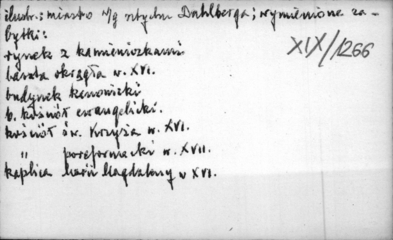 ilustr.: miasto w/g sztychu Dahlberga; wymienione za-
bytki:
XIX/1266
rynek z kamieniczkami
baszta okrągła w. XVI.
budynek
b. kościół ewangelicki.
kościół św. Krzyża w. XVI.
" poreformacki w. XVII.
kaplica Marii Magdaleny w XVI.